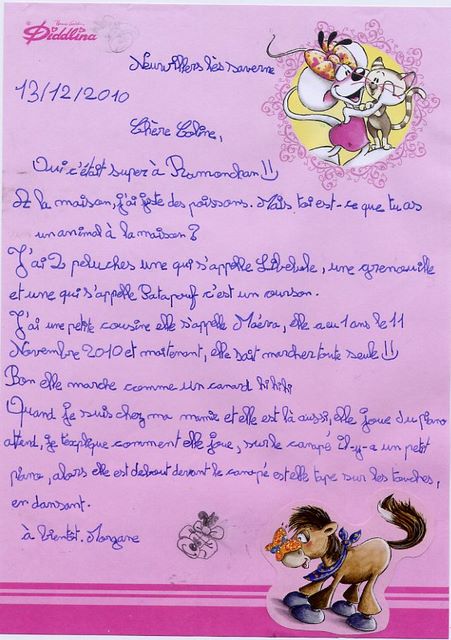 Diddlina
Neuwillers lès saverne
13/12/2010
Chère Coline,
Oui c'était super à Ramonchan !!
A la maison, j'ai juste des poissons. Mais toi est-ce que tu as
un animal à la maison ?
J'ai 2 peluches une qui s'appelle Libelule, une grenouille
et une qui s'appelle Patapouf c'est un ourson.
J'ai une petite cousine elle s'appelle Maéva, elle a eu 1 ans le 11
Novembre 2010 et maitenant, elle sait marcher toute seule !!
Bon elle marche comme un canard hihihi
Quand je suis chez ma mamie et elle est là aussi, elle joue du piano
attend, je t'explique comment elle joue, sur le canapé il-y-a un petit
piano, alors elle est debout devant le canapé est elle tape sur les touches,
en dansant.
à bientot. Morgane